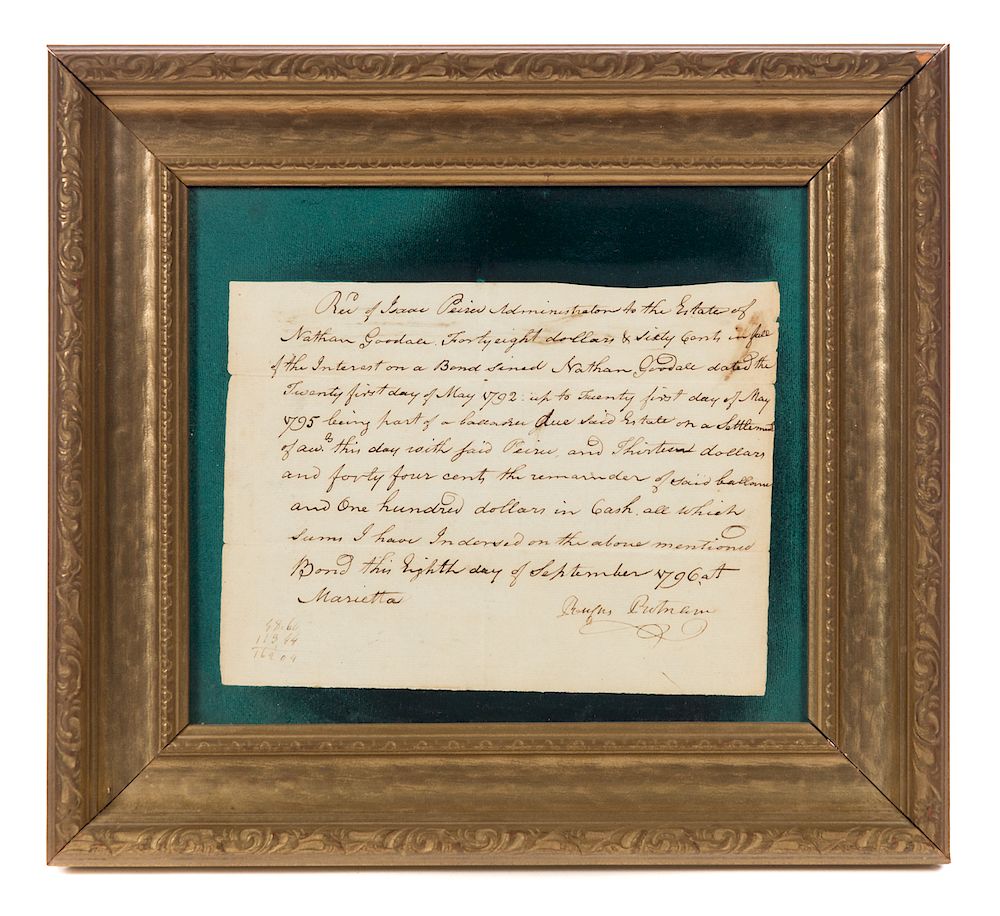 Recd of Isaac Peirce Administrator to the Estate of
Nathan Goodale. Forty eight dollars & Sixty Cents in full
of the Interest on a Bond sined Nathan Goodale dated the
Twenty first day of May 1792 up to Twenty first day of May
1795 being part of a ballance due said Estate on a Settlement
of this day with said Peirce, and Thirteen dollars
and forty four cents the remainder of said ballance
and One hundred dollars in Cash. all which
sums I have Indersed on the above mentioned
Bond this Eighth day of September 1796. at
Marietta
Rufus Putnam
48.60
113 44
162 04